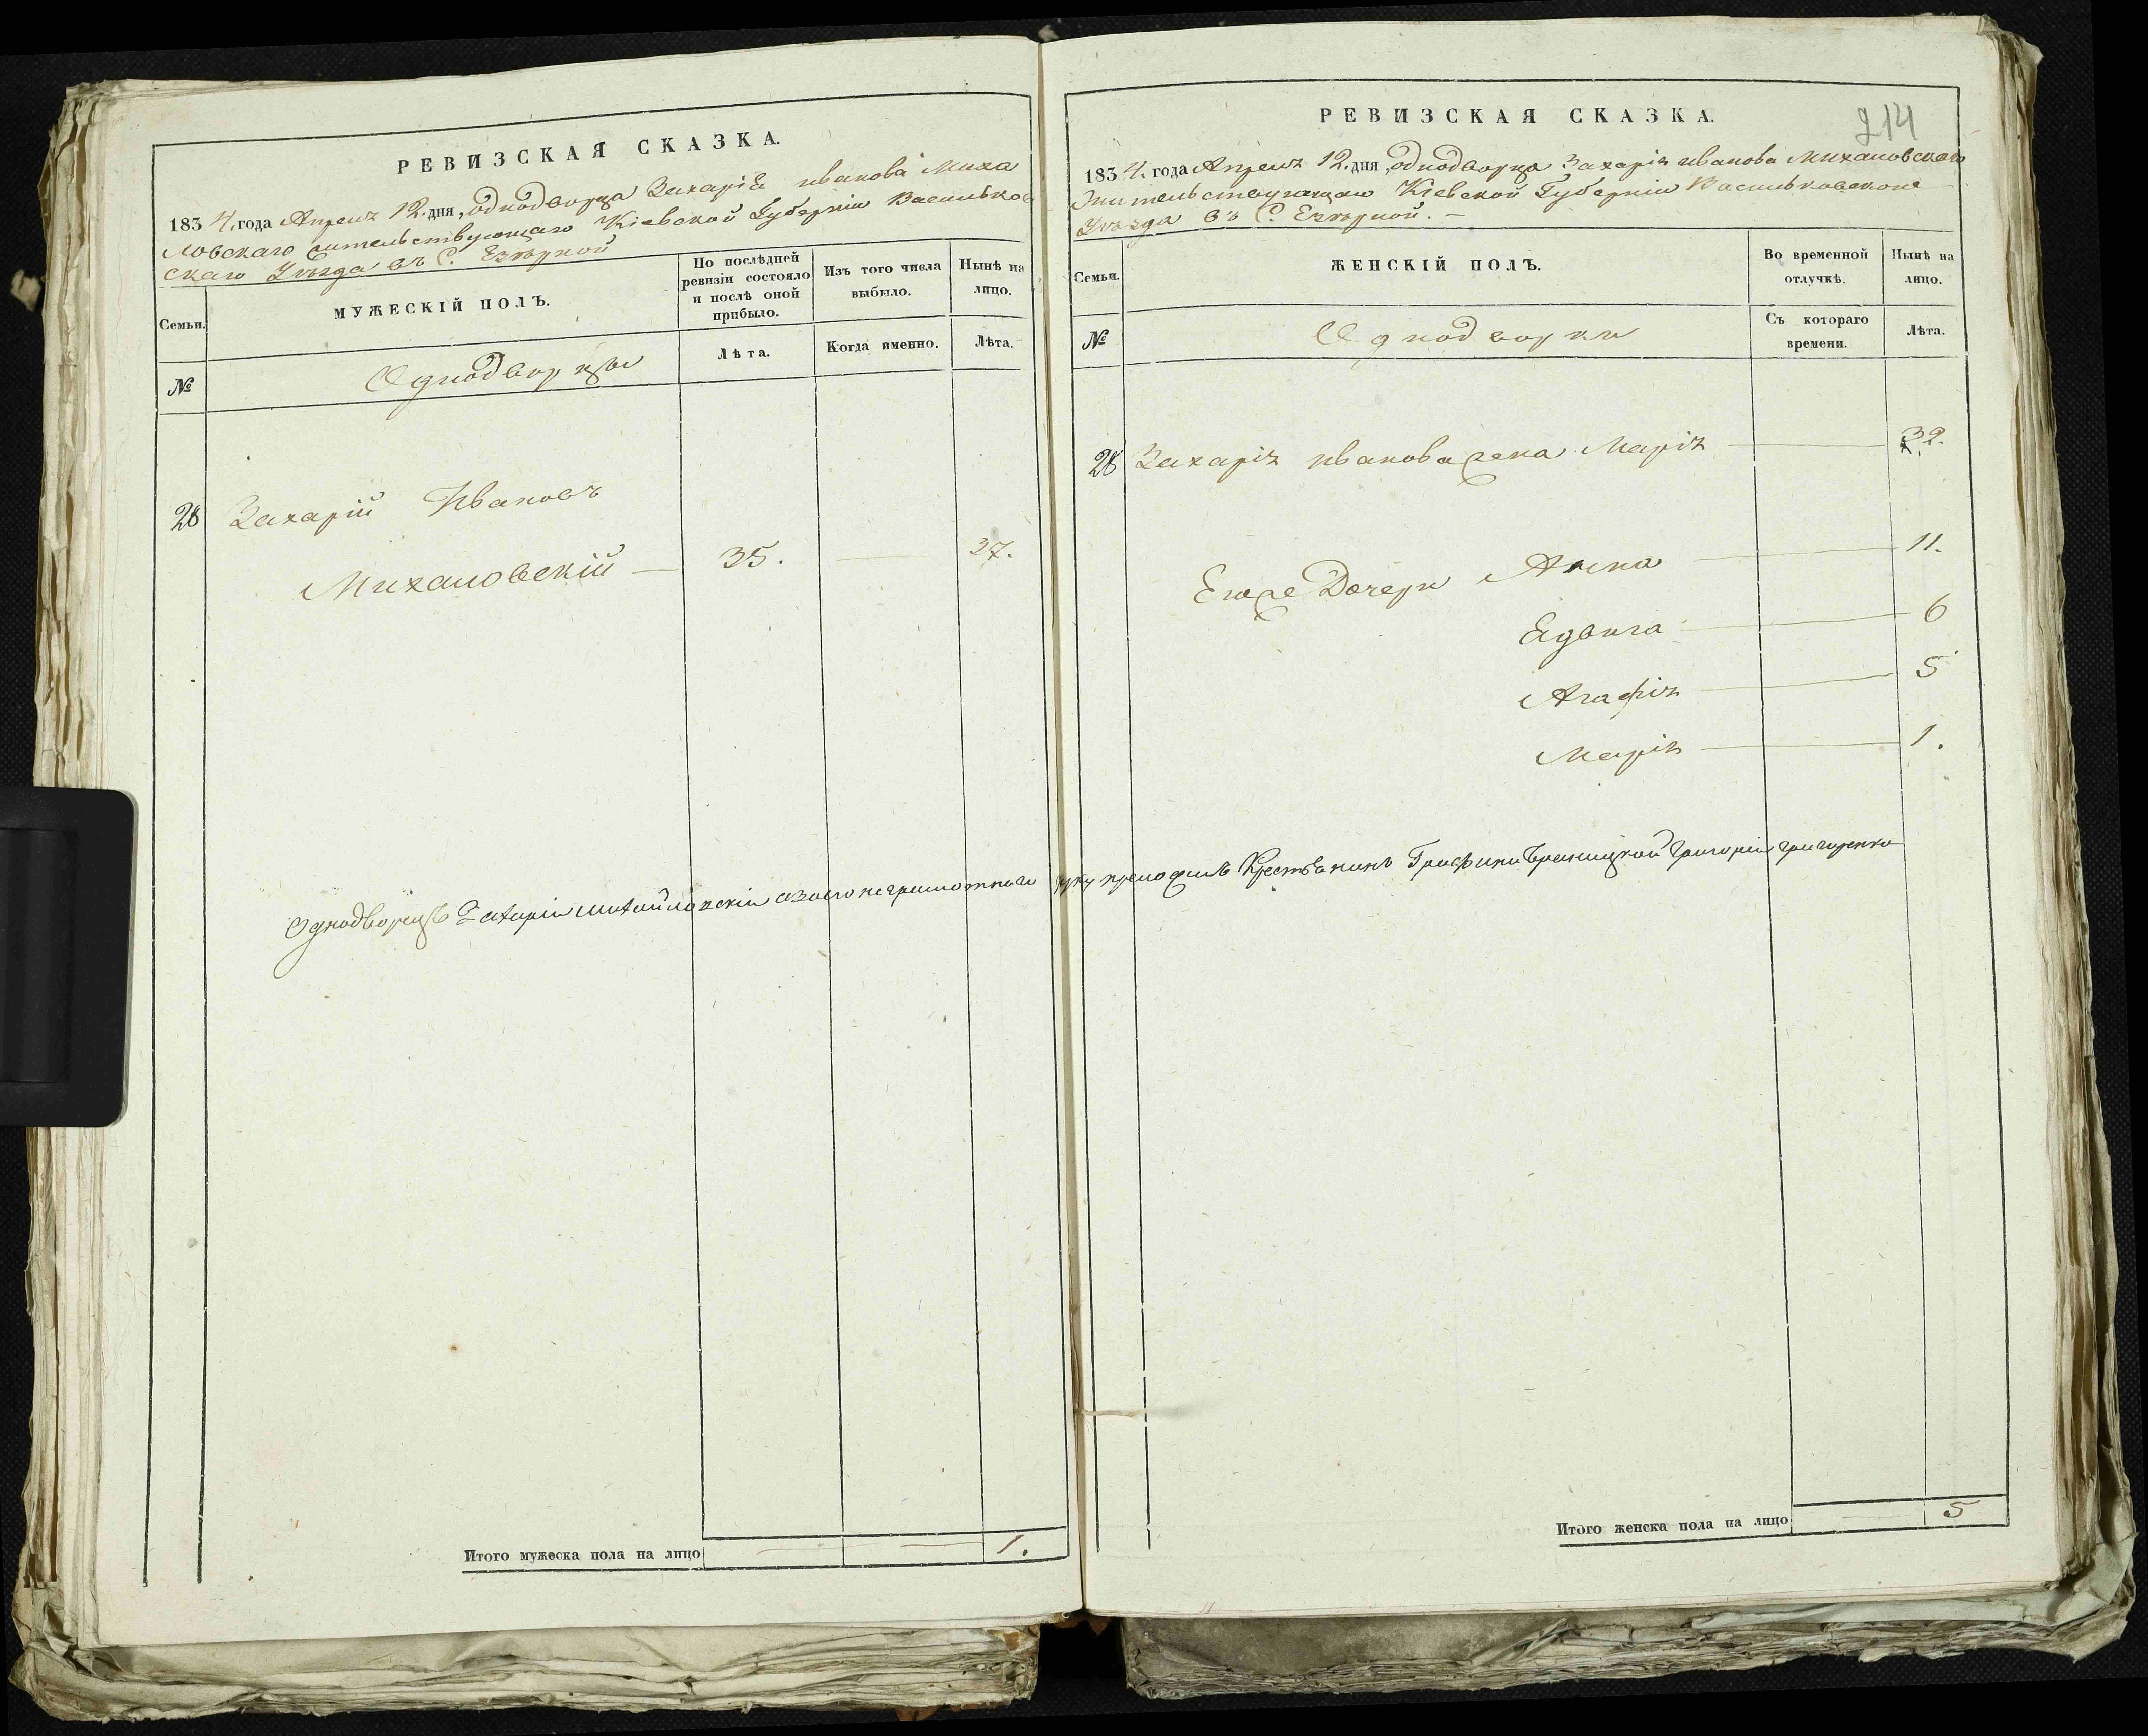 РЕВИЗСКАЯ СКАЗКА.
1834, года Апреля 12. дня, однодворца Захарія Иванова Миха
ловскаго жительствующаго Кіевской Губерніи Васильков
скаго Уѣзда въ С. Езѣрной
Семьи.
МУЖЕСКІЙ ПОЛЪ.
По послѣдней
ревизіи состояло
и послѣ оной
прибыло.
Изъ того числа
выбыло.
Нынѣ на
лицо.
№
Однодворцы
Лѣта.
Когда именно.
Лѣта.
28 Захарій Ивановъ
Михаловскій — 35. — 37.
Однодворецъ Захарій Михайловскій а за его неграмотного руку приложилъ Крестьянинъ Графини Браницкой Григорій Григоренко
Итого мужеска пола на лицо — — 1.
214
РЕВИЗСКАЯ СКАЗКА.
1834. года Апреля 12. дня, однодворца Захарія Иванова Михаловскаго
жительствующаго Кіевской Губерніи Васильковскаго
Уѣзда въ С. Езѣрной. —
Семьи.
ЖЕНСКІЙ ПОЛЪ.
Во временной
отлучкѣ.
Нынѣ на
лицо.
№
Однодворки
Съ котораго
времени.
Лѣта.
28 Захарія Иванова жена Марія — 32.
Егоже Дочери Анна — 11.
Едвига — 6
Агафія — 5
Марія — 1.
Итого женска пола на лицо — 5